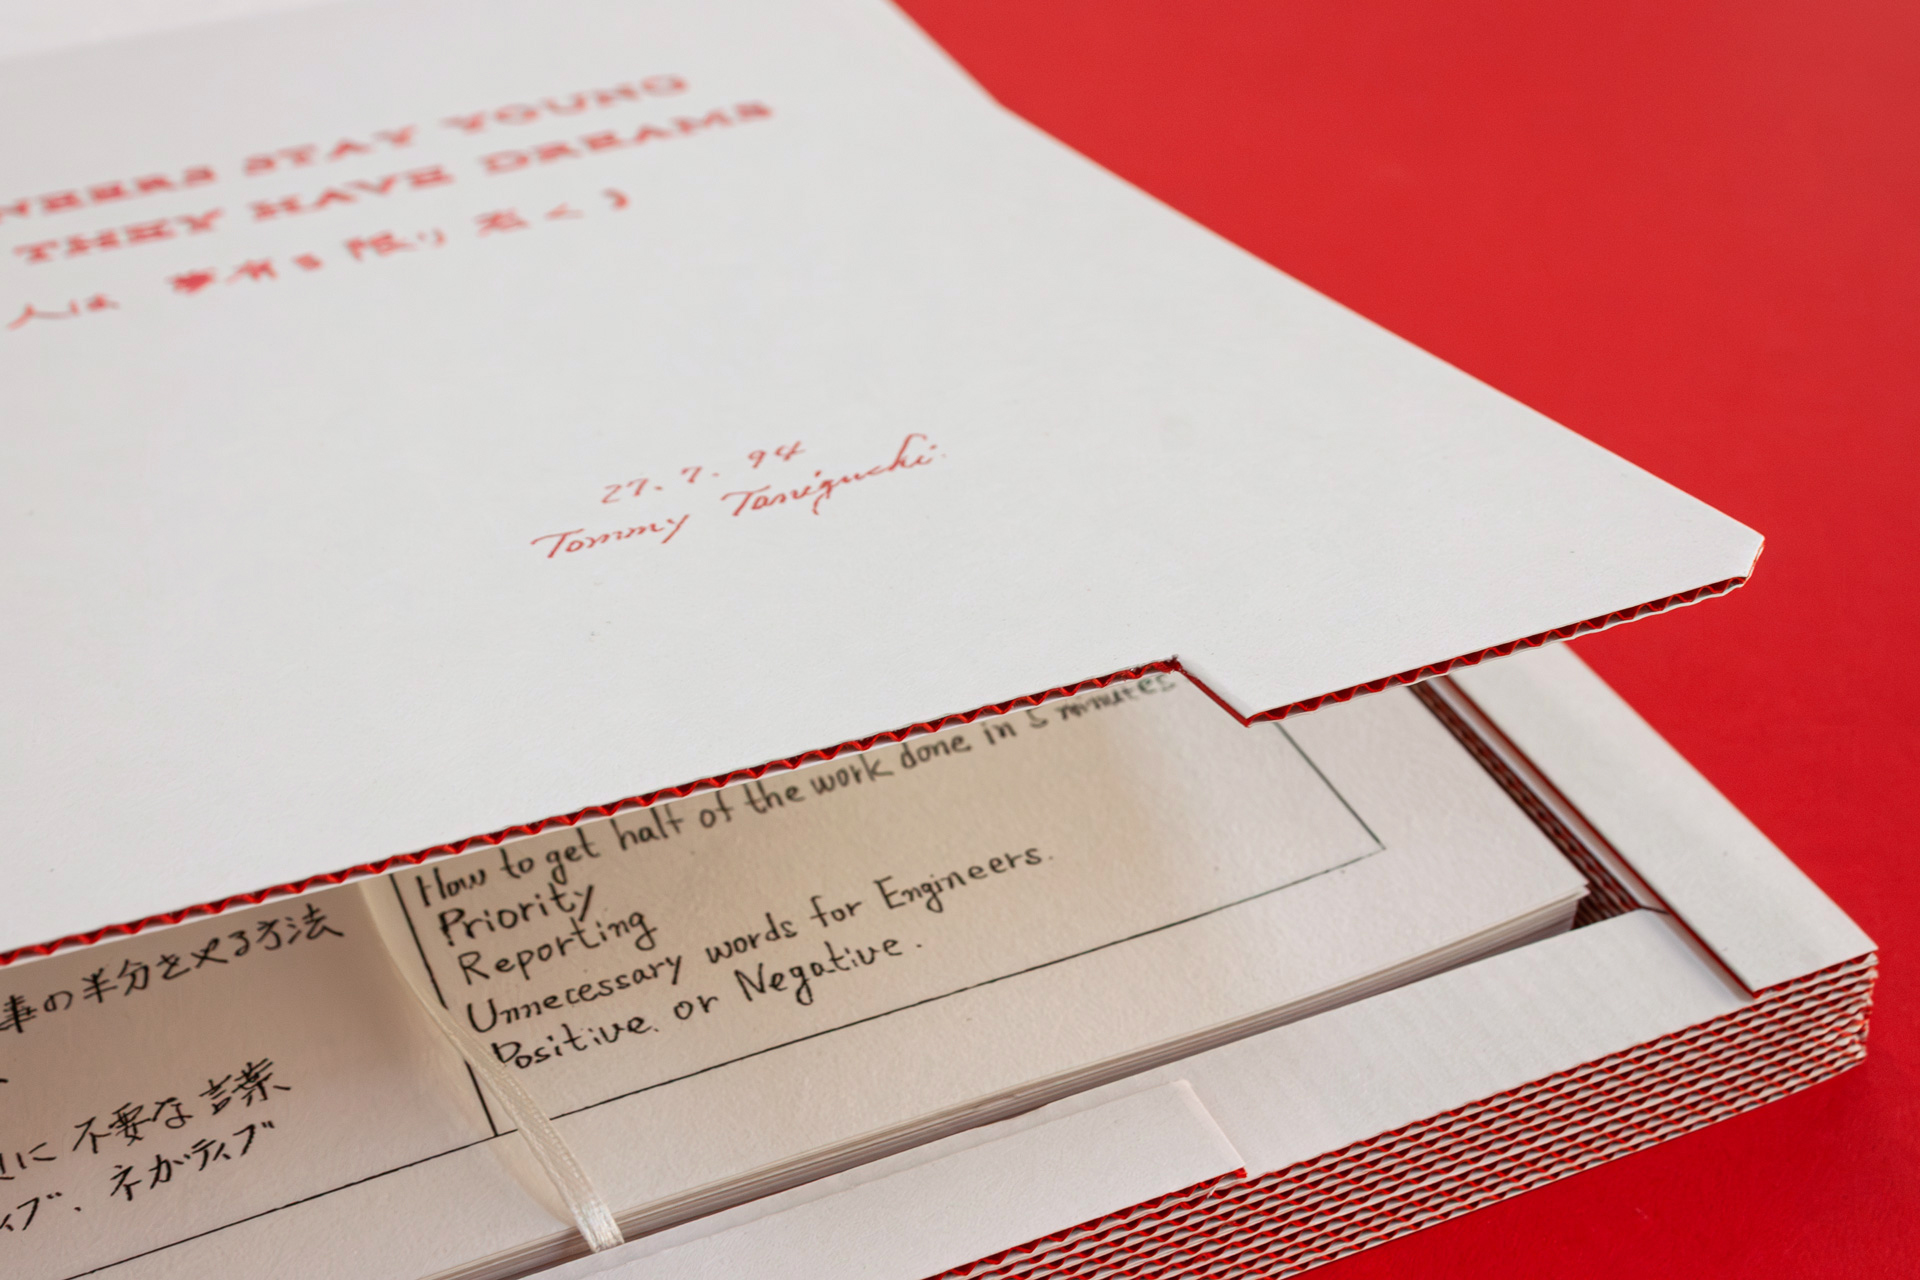 STAY YOUNG
THEY HAVE DREAMS
人は 夢有る限り 若く
27.7.94
Tommy Taniguchi
事の半分をやる方法
に 不要な言葉
ィブ、ネガティブ
How to get half of the work done in 5 minutes
Priority
Reporting
Unnecessary words for Engineers.
Positive or Negative.